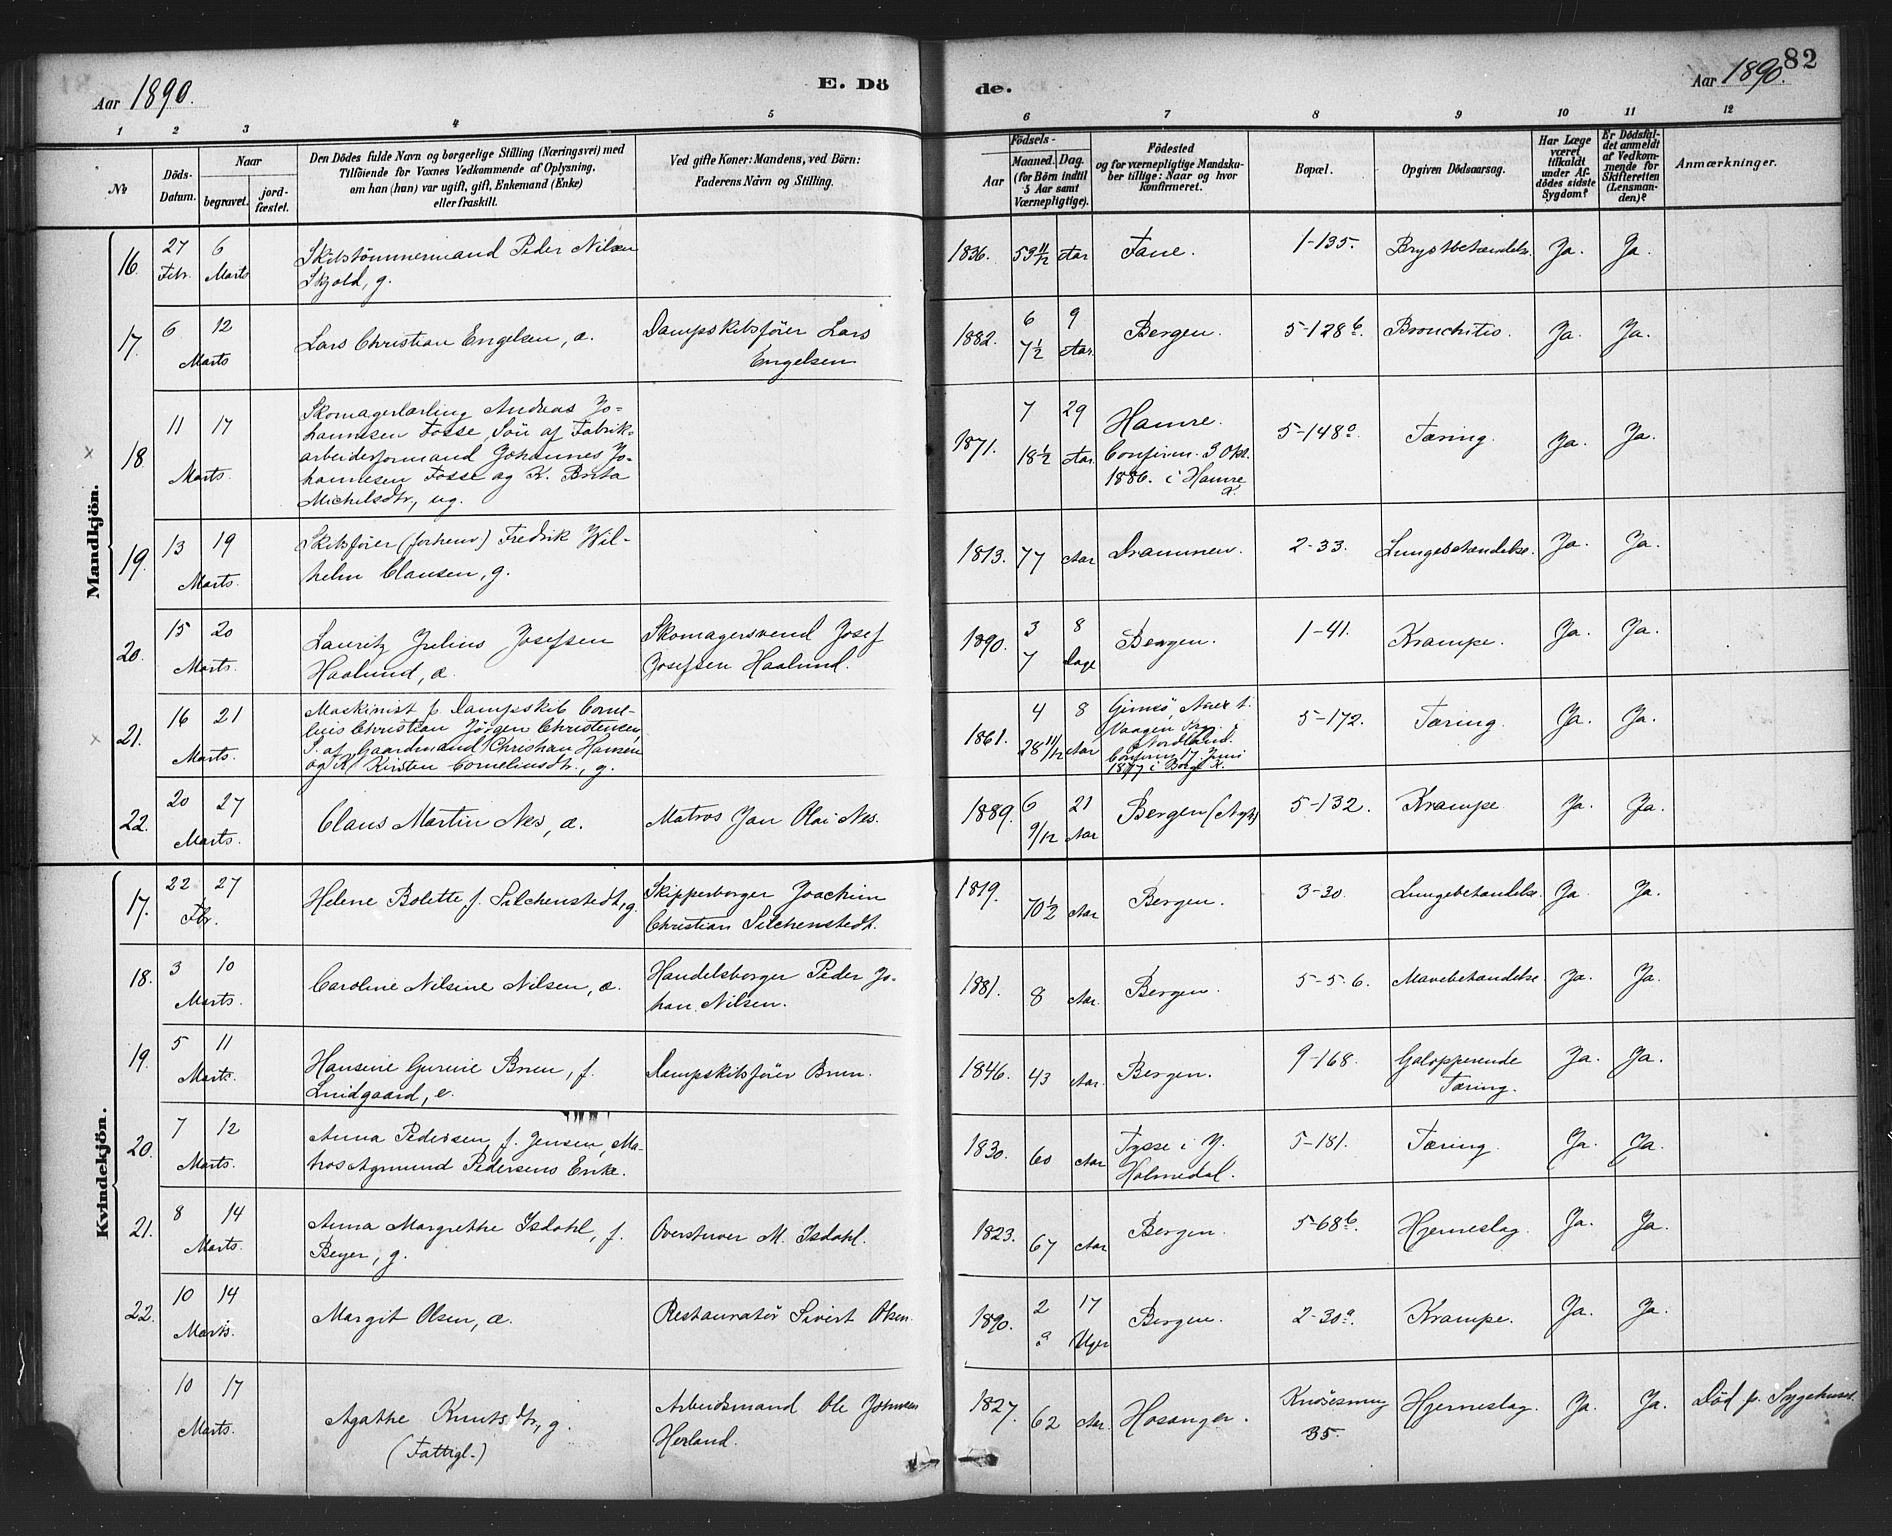 Aar 1890.
E. Dö
de.
Aar 1890.
82
1 2 3 4 5 6 7 8 9 10 11 12
No
Döds-Datum.
Naar
begravet.
jord-fæstet.
Den Dödes fulde Navn og borgerlige Stilling (Næringsvei) med
Tilföiende for Voxnes Vedkommende af Oplysning,
om han (hun) var ugift, gift, Enkemand (Enke)
eller fraskilt.
Ved gifte Koner: Mandens, ved Börn:
Faderens Navn og Stilling.
Födsels-
Aar
Maaned. Dag.
(for Börn indtil
5 Aar samt
Værnepligtige).
Födested
og for værnepligtige Mandsku-
ber tillige: Naar og hvor
konfirmeret.
Bopæl.
Opgiven Dödsaarsag.
Har Læge
været
tilkaldt
under Af-
dödes sidste
Sygdom?
Er Dödsfal-
det anmeldt
af Vedkom-
mende for
Skifteretten
(Lensman-
den)?
Anmærkninger.
Mandkjön.
16. 27 Febr. 6 Marts Skibstömmermand Peder Nilsen
Skjold, g.
1836. 53 11/12 Aar Fane. 1-135. Brystbetændelse. Ja. Ja.
17. 6 12 Marts Lars Christian Engelsen, æ. Dampskibsförer Lars
Engelsen
1882. 6 9 7½ Aar. Bergen. 5-128 b. Bronchitis. Ja. Ja.
18. 11 17 Marts. Skomagerlærling Andreas Jo-
hannesen Fosse, Sön af Fabrik-
arbeiderformand Johannes Jo-
hannesen Fosse og K. Brita
Michelsdtr., ug.
1871. 7 29 18½ Aar. Hamre.
Confirm. 3 Okt.
1886. i Hamre
K.
5-148 a. Tæring. Ja. Ja.
19. 13 19 Marts. Skibsförer (forhenv.) Fredrik Wil-
helm Clausen, g.
1813. 77 Aar Drammen. 2-33. Lungebetændelse. Ja. Ja.
20. 15 20 Marts. Lauritz Julius Josefsen
Haalund, æ.
Skomagersvend Josef
Josefsen Haalund.
1890. 3 8 7 Dage Bergen. 1-41. Krampe. Ja. Ja.
21. 16 21 Marts. Maskinist p. Dampskib Corne-
lius Christian Jørgen Christensen,
S. af Gaardmand Christian Hansen
og K. Kirsten Corneliusdtr., g.
1861. 4 8 28 11/12 Aar Gimsö, Anex t.
Vaagen Prg. i
Nordland.
Confirm. 17. Juni
1877 i Borge K.
5-172. Tæring. Ja. Ja.
22. 20 27 Marts. Claus Martin Nes, æ. Matros Jan Olai Nes.
1889. 6 21 9/12 Aar Bergen (Nyk) 5-132. Krampe Ja. Ja.
Kvindekjön.
17. 22 27 Fbr. Helene Bolette f. Silchenstedt, g. Skipperborger Joachim
Christian Silchenstedt.
1819. 70½ Aar Bergen. 3-30. Lungebetændelse. Ja Ja.
18. 3 10 Marts. Caroline Nilsine Nilsen, æ. Handelsborger Peder Jo-
han Nilsen.
1881. 8 Aar. Bergen. 5-5 b. Mavebetændelse Ja. Ja.
19. 5 11 Marts. Hansine Gurine Brun, f.
Lindgaard, e.
Dampskibsförer Brun.
1846. 43 Aar. Bergen. 9-168. Galopperende
Tæring.
Ja. Ja.
20. 7 12 Marts. Anna Pedersen, f. Jensen, Ma-
tros Agmund Pedersens Enke.
1830. 60 Aar Tysse i Y.
Holmedal.
5-181. Tæring. Ja. Ja.
21. 8 14 Marts. Anna Margrethe Isdahl, f.
Beyer, g.
Overstuver M. Isdahl.
1823. 67 Aar Bergen. 5-68 b. Hjerneslag. Ja. Ja.
22. 10 14 Marts. Margit Olsen, æ. Restauratör Sivert Olsen.
1890. 2 17 Uger Bergen. 2-30 a. Krampe. Ja. Ja.
10 17 Marts. Agathe Knutsdtr., g.
(Fattigl.)
Arbeidsmand Ole Johnsen
Herland.
1827. 62 Aar. Hosanger. Knösesmug
35.
Hjerneslag. Ja. Ja. Död p. Sygehuset